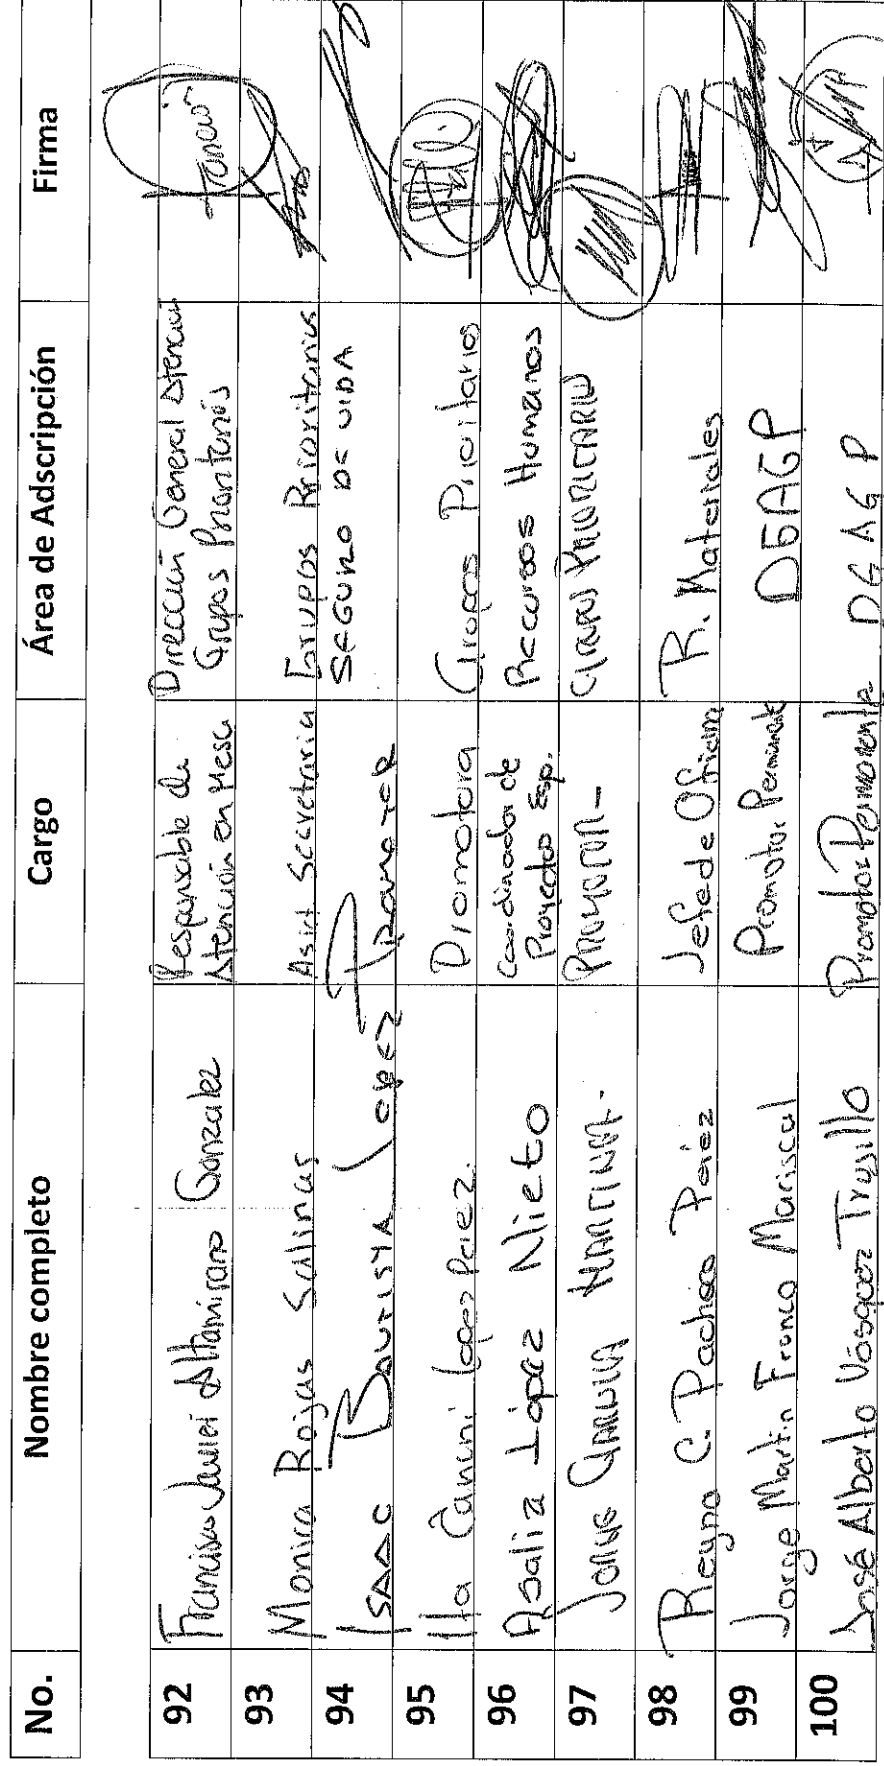 No. Nombre completo Cargo Área de Adscripción Firma
92 Francisco Javier Altamirano Gonzalez Responsable de Dirección General Atención
Atención en Mesa Grupos Prioritarios
93 Monica Rojas Salinas Asist Secretaria Grupos Prioritarios
94 ISAAC BAUTISTA LOPEZ Promotor SEGURO DE VIDA
95 Lopez Paez. Promotora Grupos Prioritarios
96 Rosalia López Nieto Coordinador de Recursos Humanos
Proyectos Esp.
97 JORGE MARTINEZ. PROMOTOR- GRUPOS PRIORITARIO
98 Reyna C. Pacheco Peréz Jefe de Oficina R. Materiales
99 Jorge Martin Franco Mariscal Promotor Permanente DGAGP
100 José Alberto Vásquez Trujillo Promotor Permanente DGAGP